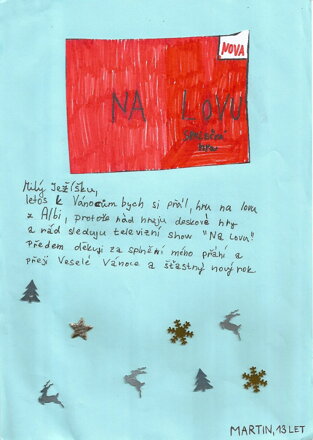 NOVA
NA LOVU
SPOLEČNÁ
HRA
Milý Ježíšku,
letos k Vánocům bych si přál, hru na lovu
z Albi, protože rád hraju deskové hry
a rád sleduju televizní show "Na Lovu".
Předem děkuji za splnění mého přání a
přeji Veselé Vánoce a šťastný nový rok
MARTIN, 13 LET